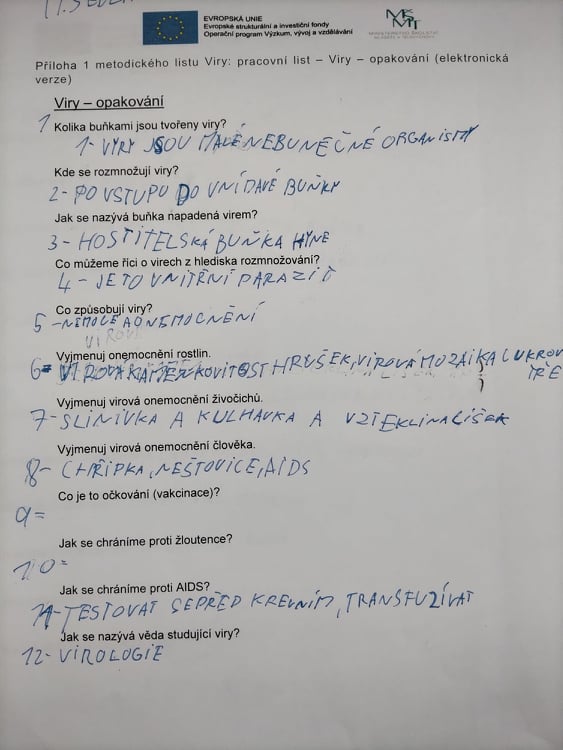 EVROPSKÁ UNIE
Evropské strukturální a investiční fondy
Operační program Výzkum, vývoj a vzdělávání
MINISTERSTVO ŠKOLSTVÍ
MLÁDEŽE A TĚLOVÝCHOVY
Příloha 1 metodického listu Viry: pracovní list – Viry – opakování (elektronická
verze)
Viry – opakování
1 Kolika buňkami jsou tvořeny viry?
1- VIRY JSOU MALÉ NEBUNEČNÉ ORGANISMY
Kde se rozmnožují viry?
2- PO VSTUPU DO VNÍMAVÉ BUŇKY
Jak se nazývá buňka napadená virem?
3- HOSTITELSKÁ BUŇKA HYNE
Co můžeme říci o virech z hlediska rozmnožování?
4- JE TO VNITŘNÍ PARAZIT
Co způsobují viry?
5- NEMOCE A ONEMOCNĚNÍ
Vyjmenuj onemocnění rostlin.
6- VIROVÁ KAMÉNKOVITOST HRUŠEK, VIROVÁ MOZAIKA CUKROV
Vyjmenuj virová onemocnění živočichů.
7- SLINIVKA A KULHAVKA A VZTEKLINA LIŠEK
Vyjmenuj virová onemocnění člověka.
8- CHŘIPKA, NEŠTOVICE, AIDS
Co je to očkování (vakcinace)?
9=
Jak se chráníme proti žloutence?
10=
Jak se chráníme proti AIDS?
11- TESTOVAT SE PŘED KREVNÍM, TRANSFUZÍVAT
Jak se nazývá věda studující viry?
12- VIROLOGIE